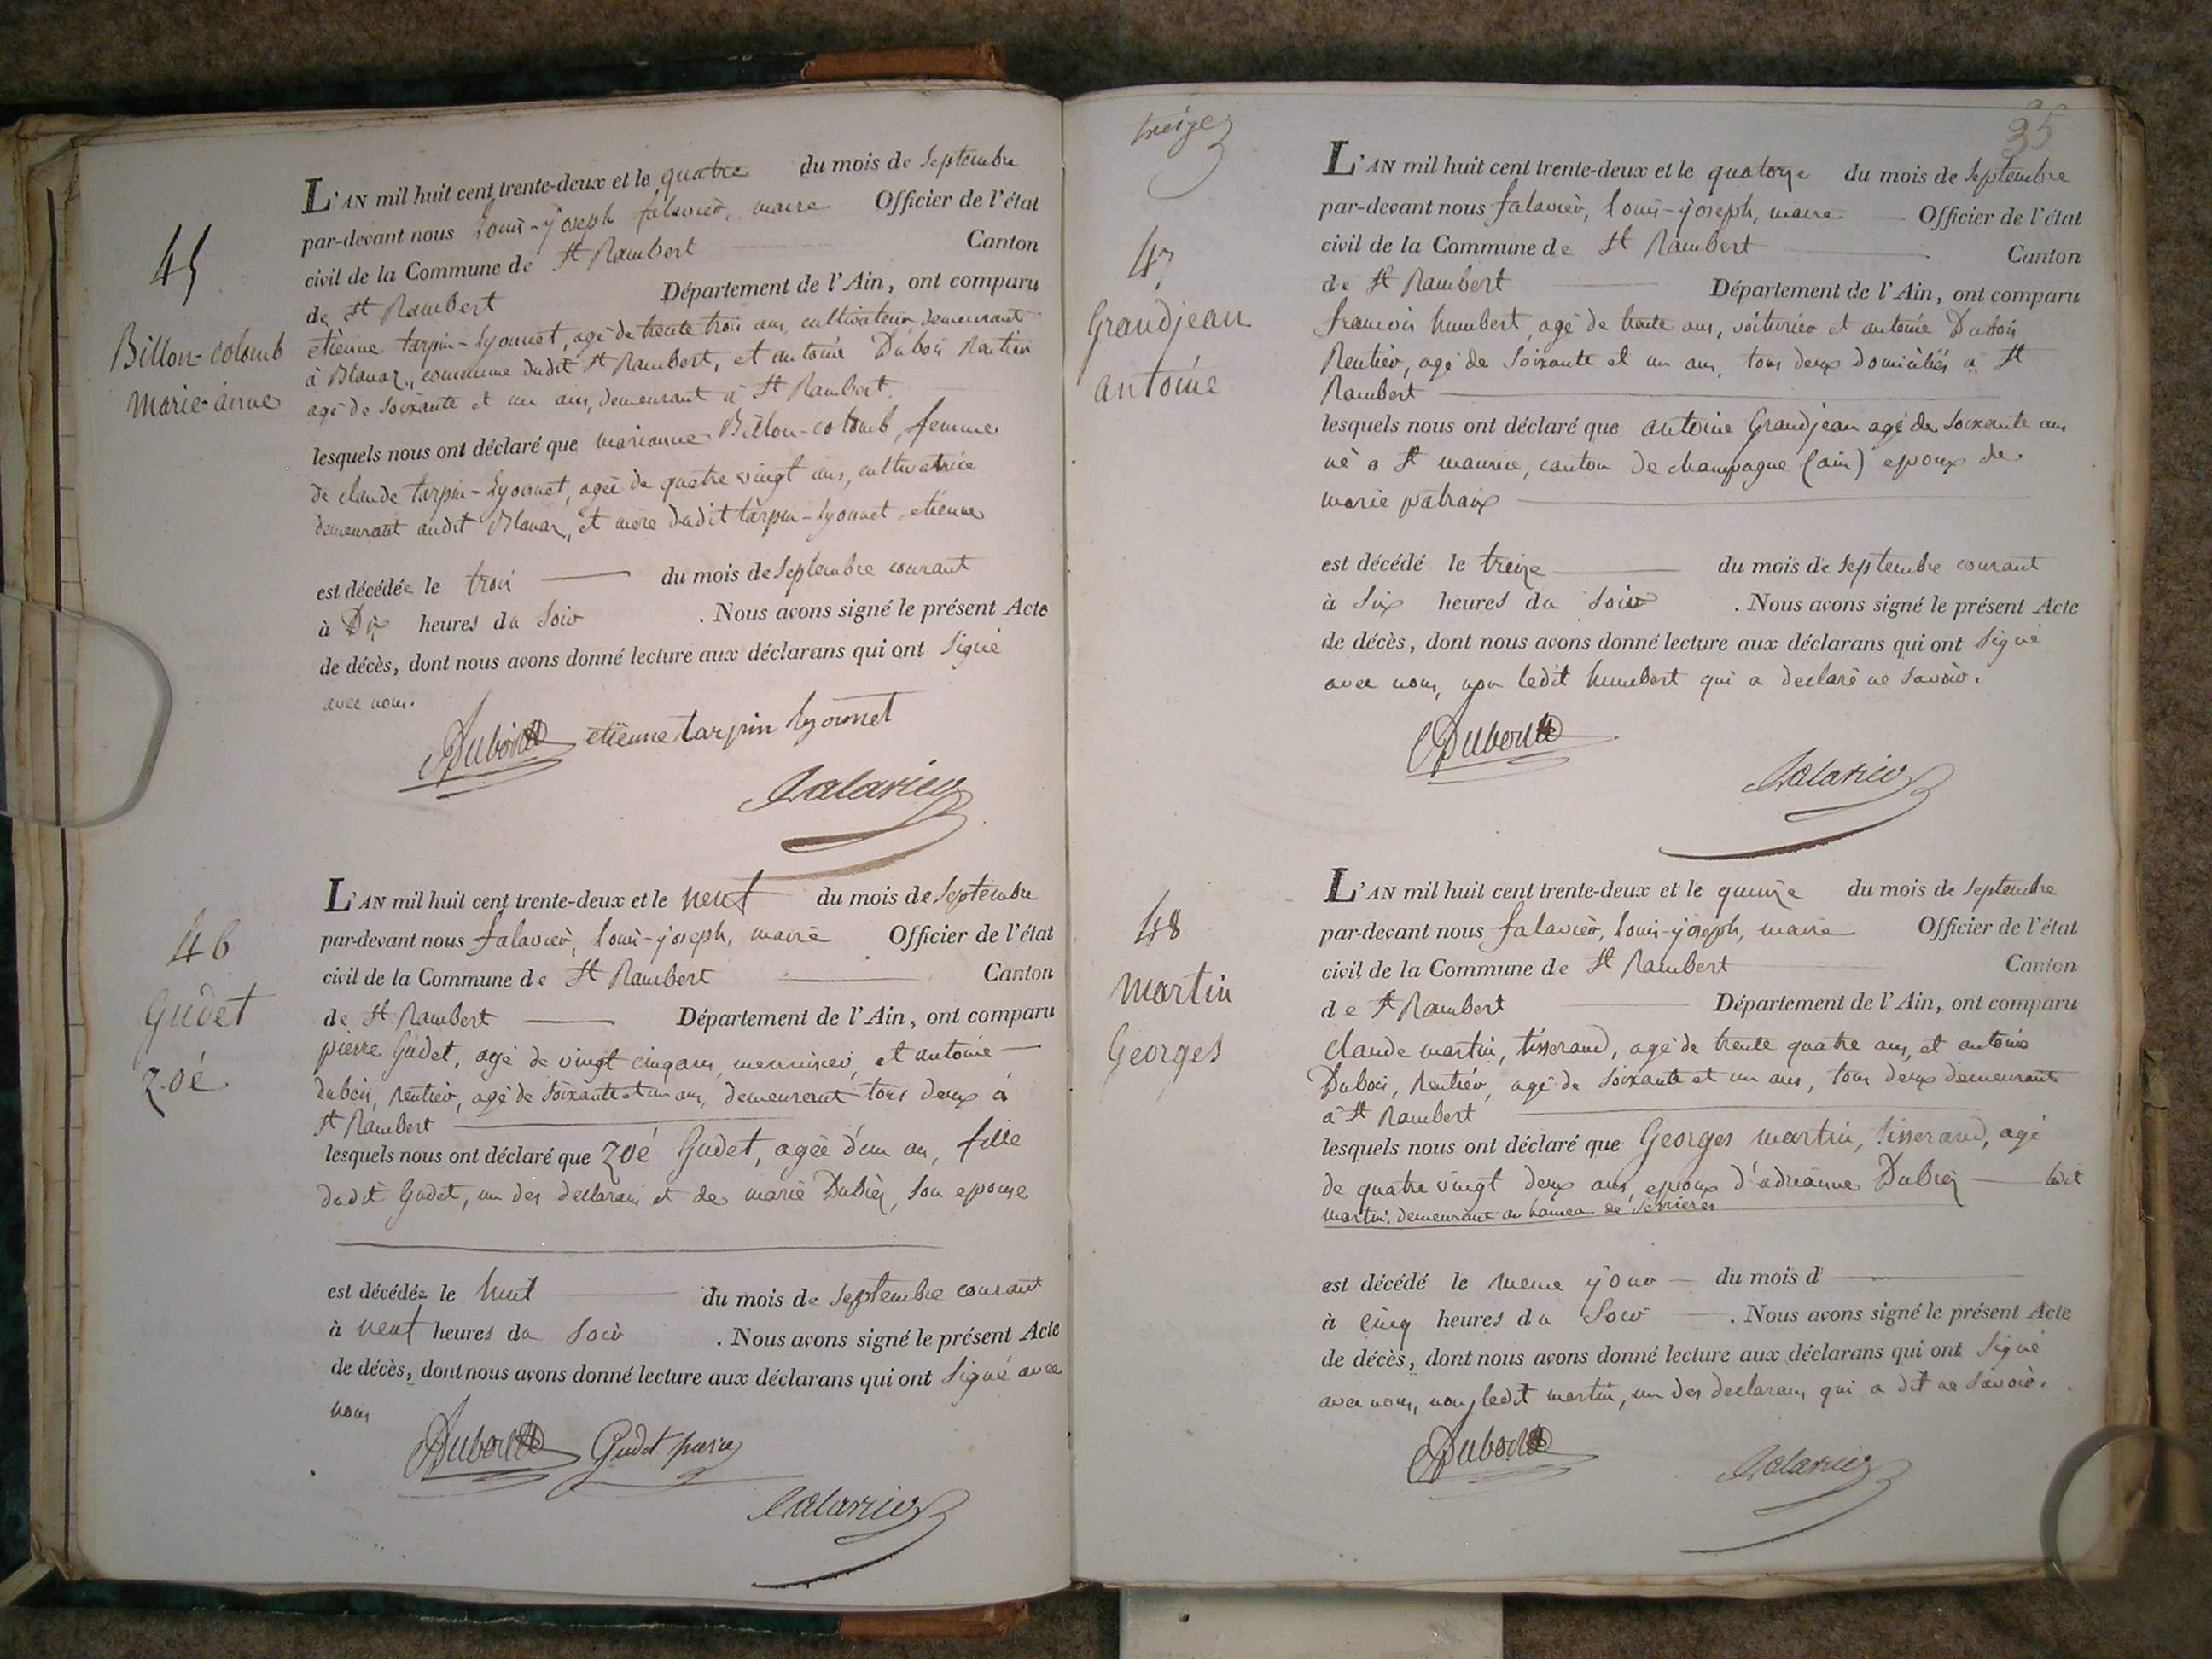 45
Billon-colomb
marie-anne
L'AN mil huit cent trente-deux et le quatre du mois de Septembre
par-devant nous Louis-joseph falavier, maire Officier de l'état
civil de la Commune de St Rambert Canton
de St Rambert Département de l'Ain, ont comparu
etienne tarpin-Lyonnet, agé de trente trois ans, cultivateur demeurant
à Blanaz, commune dudit St Rambert, et antoine Dubois Rentier
agé de soixante et un ans, demeurant à St Rambert.
lesquels nous ont déclaré que marianne Billon-colomb, femme
de claude tarpin-Lyonnet, agée de quatre vingt ans, cultivatrice
demeurant audit Blanaz, et mère dudit tarpin-Lyonnet, etienne
est décédée le trois du mois de Septembre courant
à Dix heures du Soir . Nous avons signé le présent Acte
de décès, dont nous avons donné lecture aux déclarans qui ont Signé
avec nous.
Dubois etienne tarpin lyonnet
falavier
46
Gudet
zoé
L'AN mil huit cent trente-deux et le neuf du mois de Septembre
par-devant nous falavier, Louis-joseph, maire Officier de l'état
civil de la Commune de St Rambert Canton
de St Rambert Département de l'Ain, ont comparu
pierre Gudet, agé de vingt cinq ans, menuisier, et antoine
dubois, rentier, agé de soixante et un ans, demeurant tous deux à
St Rambert
lesquels nous ont déclaré que zoé Gudet, agée d'un an, fille
dudit Gudet, un des declarans et de marie Dubiez, son epouse
est décédée le huit du mois de Septembre courant
à neuf heures du Soir . Nous avons signé le présent Acte
de décès, dont nous avons donné lecture aux déclarans qui ont Signé avec
nous
Dubois Gudet pierre
falavier
treize
35
47
Grandjean
antoine
L'AN mil huit cent trente-deux et le quatorze du mois de Septembre
par-devant nous falavier, Louis-joseph, maire Officier de l'état
civil de la Commune de St Rambert Canton
de St Rambert Département de l'Ain, ont comparu
francois humbert, agé de trente ans, voiturier et antoine Dubois
Rentier, agé de Soixante et un ans, tous deux domiciliés à St
Rambert
lesquels nous ont déclaré que antoine Grandjean agé de Soixante ans
né a St maurice, canton de champagne (ain) epoux de
marie patraix
est décédé le treize du mois de Septembre courant
à Six heures du Soir . Nous avons signé le présent Acte
de décès, dont nous avons donné lecture aux déclarans qui ont Signé
avec nous, non ledit humbert qui a declaré ne savoir.
Dubois
falavier
48
Martin
Georges
L'AN mil huit cent trente-deux et le quinze du mois de Septembre
par-devant nous falavier, Louis-joseph, maire Officier de l'état
civil de la Commune de St Rambert Canton
de St Rambert Département de l'Ain, ont comparu
claude martin, tisserand, agé de trente quatre ans, et antoine
Dubois, Rentier, agé de Soixante et un ans, tous deux demeurant
à St Rambert
lesquels nous ont déclaré que Georges martin, tisserand, agé
de quatre vingt deux ans, epoux d'adrianne Dubiez ledit
martin demeurant au hameau de Serrieres
est décédé le meme jour du mois d
à cinq heures du Soir . Nous avons signé le présent Acte
de décès, dont nous avons donné lecture aux déclarans qui ont Signé
avec nous, non ledit martin, un des declarans qui a dit ne savoir.
Dubois
falavier